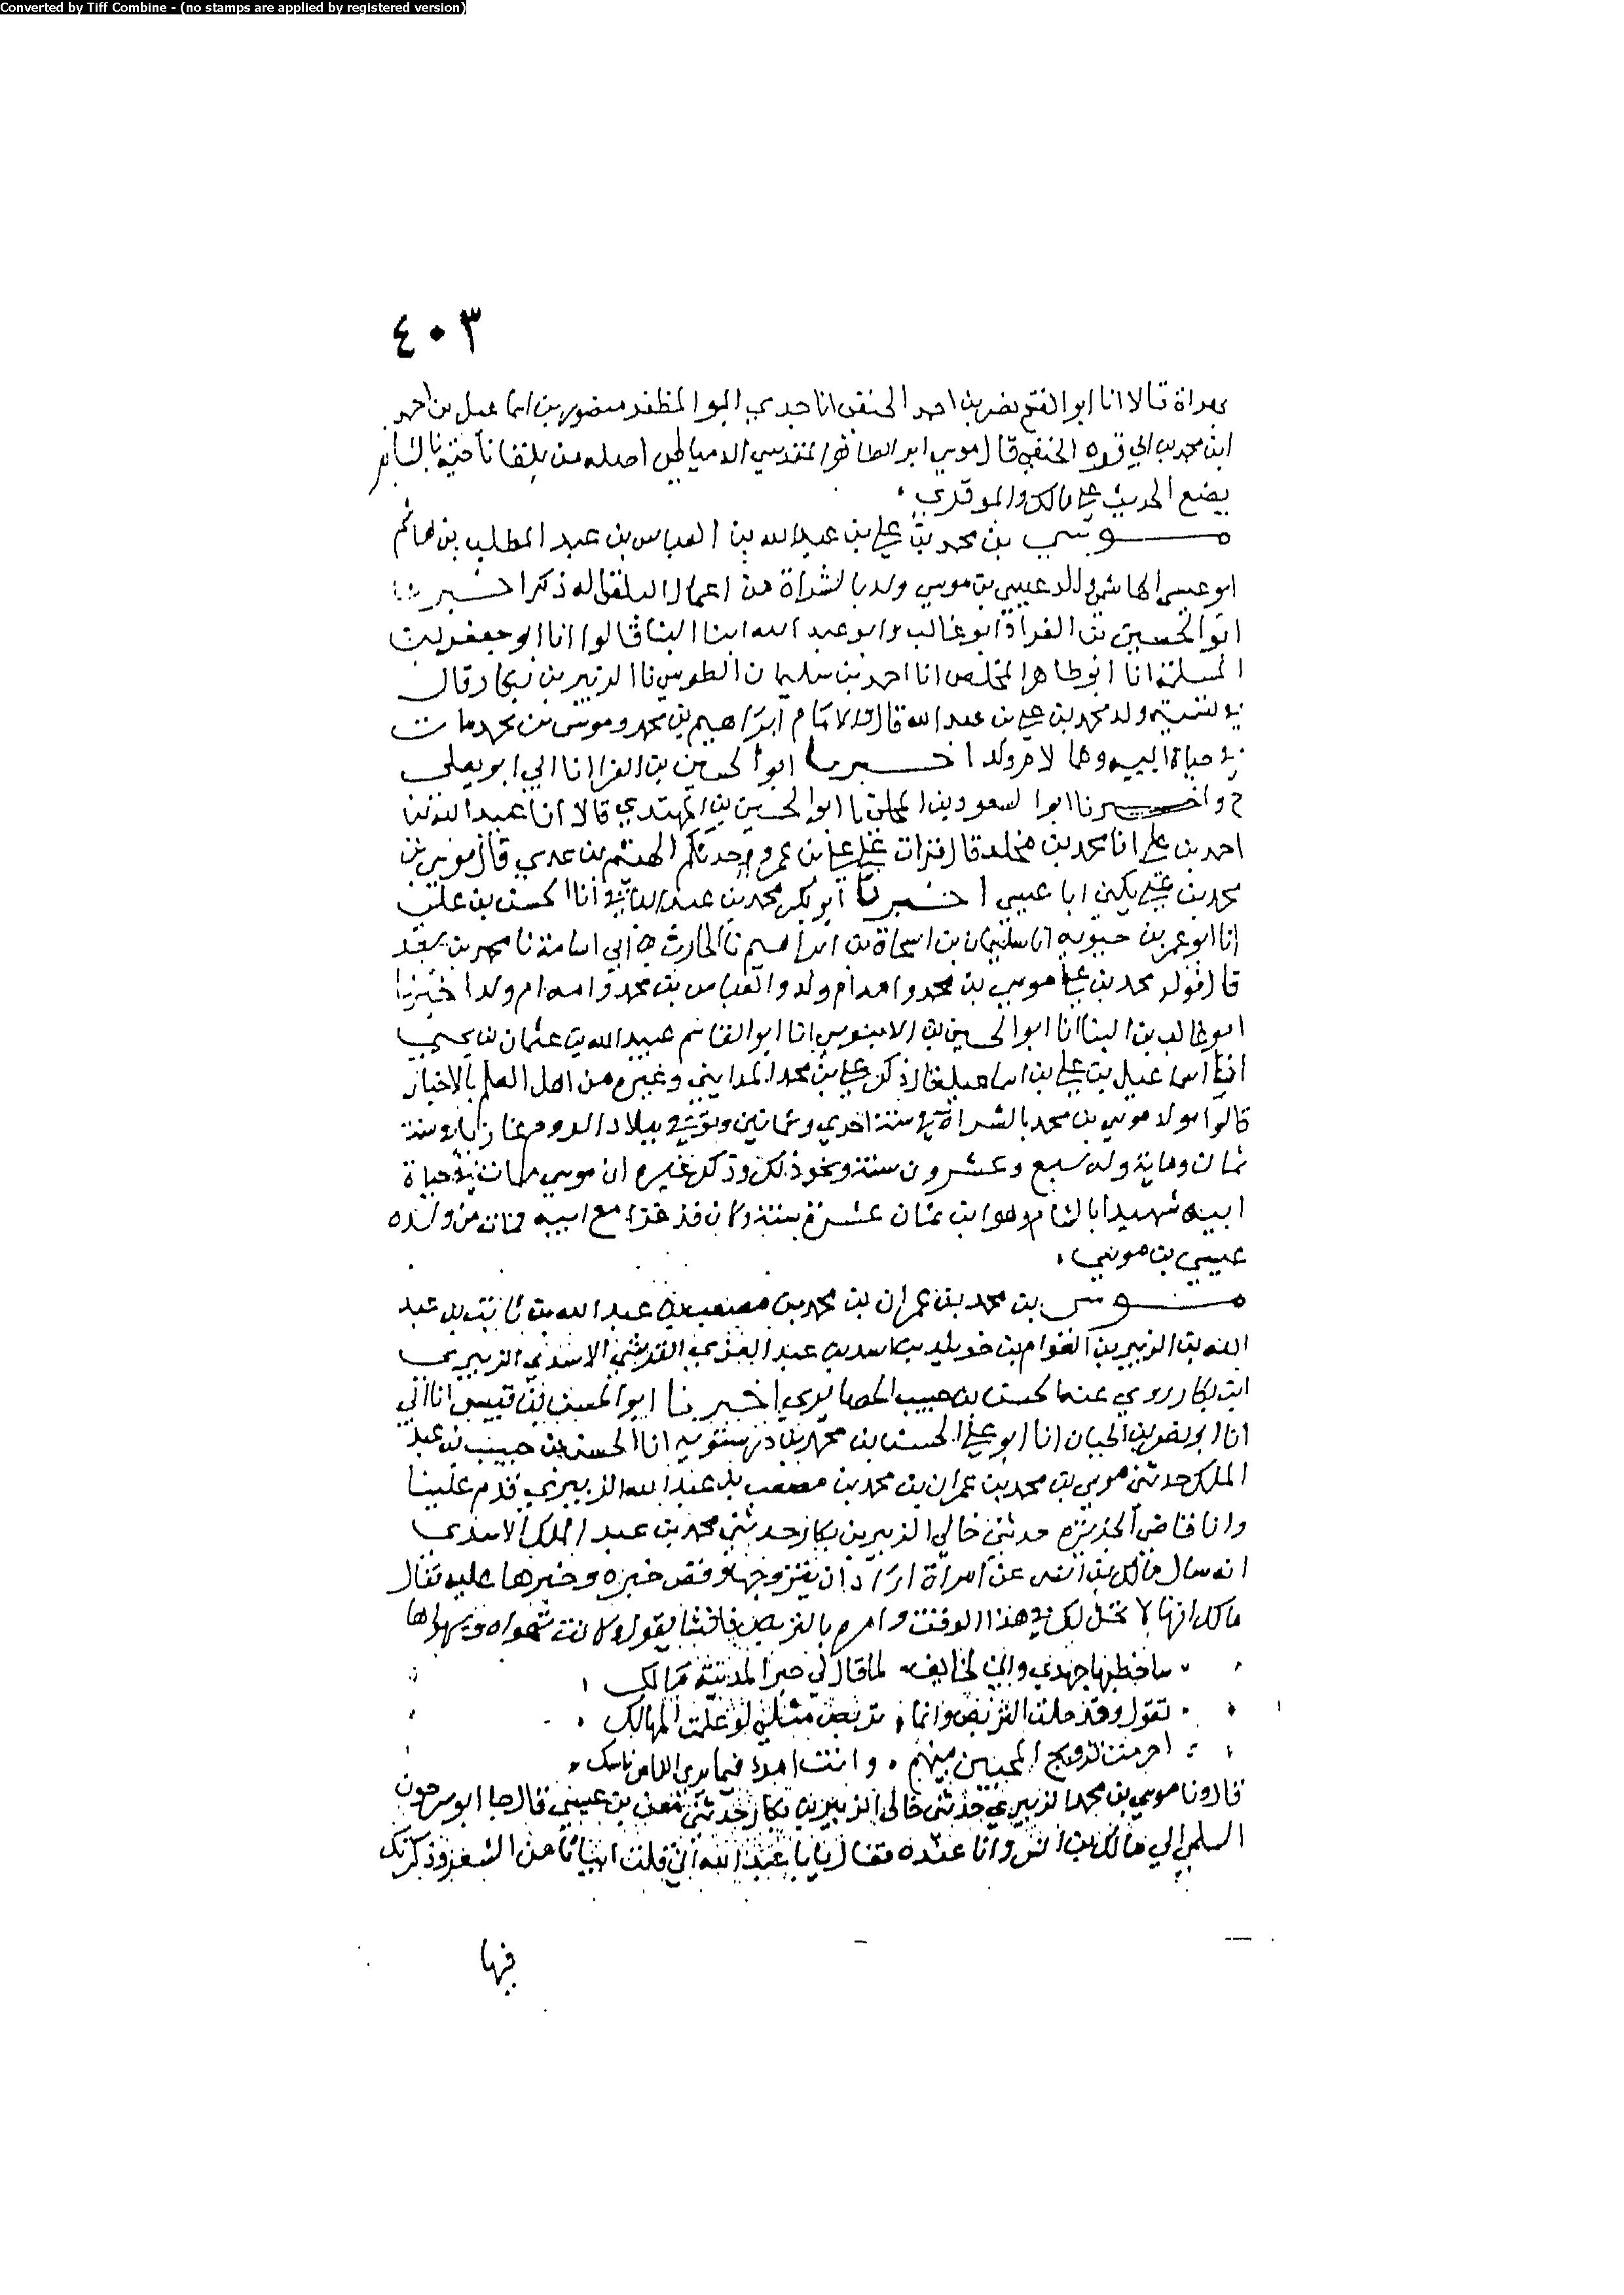 Converted by Tiff Combine - (no stamps are applied by registered version)
٤٠٣
بهراة قالا انا ابو الفتح نصر بن احمد الحنفي انا جدي ابو المظفر منصور بن اسماعيل بن احمد
ابن محمد بن ابي قره الحنفي قال موسى ابو الطاهر المقدسي الدمياطي اصله من بلقا ناحية بالشام
يضع الحديث على مالك والموقري
موسى بن محمد بن علي بن عبد الله بن العباس بن عبد المطلب بن هاشم
ابو عيسى الهاشمي والد عيسى بن موسى ولد بالشراة من اعمال البلقا له ذكر اخبرنا
ابو الحسين بن الفراء وابو غالب وابو عبد الله ابنا البنا قالوا انا ابو جعفر بن
المسلمة انا ابو طاهر المخلص انا احمد بن سليمان الطوسي نا الزبير بن بكار قال
في تسمية ولد محمد بن علي بن عبد الله قال والامام ابراهيم بن محمد وموسى بن محمد مات
في حياة ابيه وهما لام ولد اخبرنا ابو الحسين بن الفرا انا ابي ابو يعلى
ح واخبرنا ابو السعود بن المجلي نا ابو الحسين بن المهتدي قالا انا عبيد الله بن
احمد بن علي انا محمد بن مخلد قال قرات على علي بن عمرو حدثكم الهيثم بن عدي قال موسى بن
محمد بن علي يكنى ابا عيسى اخبرنا ابو بكر محمد بن عبد الباقي انا الحسن بن علي
انا ابو عمر بن حيويه انا سليمان بن اسحاق بن ابراهيم نا الحارث بن ابي اسامة نا محمد بن سعد
قال فولد محمد بن علي موسى بن محمد وامه ام ولد والعباس بن محمد وامه ام ولد اخبرنا
ابو غالب بن البنا انا ابو الحسين بن الابنوسي انا ابو القاسم عبيد الله بن عثمان بن يحيى
انا اسماعيل بن علي بن اسماعيل قال ذكر علي بن محمد المدايني وغيره من اهل العلم بالاخبار
قالوا مولد موسى بن محمد بالشراة في سنة احدي وثمانين وتوفي ببلاد الروم غازيا في سنة
ثمان ومايه وله سبع وعشرون سنة ونحو ذلك وذكر غيره ان موسى مات في حياة
ابيه شهيدا بالشام وهو ابن ثمان عشرة سنة وكان قد غزا مع ابيه فمات من ولده
عيسى بن موسى
موسى بن محمد بن عمران بن محمد بن مصعب بن عبد الله بن ثابت بن عبد
الله بن الزبير بن العوام بن خويلد بن اسد بن عبد العزي القرشي الاسدي الزبيري
ابن بكار روي عنه الحسن بن حبيب الحصايري اخبرنا ابو الحسن بن قبيس انا ابي
انا ابو نصر بن الجبان انا ابو علي الحسن بن محمد بن درستويه انا الحسن بن حبيب بن عبد
الملك حدثني موسى بن محمد بن عمران بن محمد بن مصعب بن عبد الله الزبيري قدم علينا
وانا قاضي الجزيرة حدثني خالي الزبير بن بكار حدثني محمد بن عبد الملك الاسدي
انه سال مالك بن انس عن امراة اراد ان يتزوجها وقص خبره وخبرها عليه فقال
مالك انها لا تحل لك في هذا الوقت وامره بالتربص فانشا يقول وكانت تهواه ويهواها
ساخطبها جهدي واني لخايف لما قال لي حبر المدينة مالك
تقول وقد حلت التربص وانما تربص مثلي لو علمت المهالك
احرمت تزويج المحبين بينهم وانت امرؤ فيما يري الناس ناسك
قال ونا موسى بن محمد الزبيري حدثني خالي الزبير بن بكار حدثني معن بن عيسى قال جا ابو سرحون
السلمي الي مالك بن انس وانا عنده فقال يا ابا عبد الله اني قلت ابياتا من الشعر وذكرتك
فيها